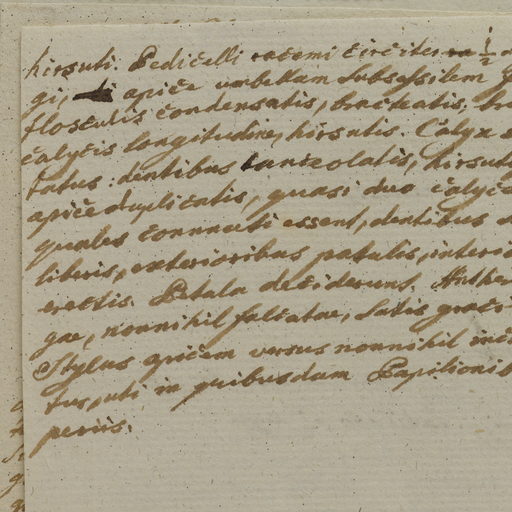 hirsuti. Pedicelli racemi circiter ½
gi, apice umbellam subsessilem
flosculis condensatis, bracteatis,
calycis longitudine, hirsutis. Calyx
tatus: dentibus lanceolatis, hirsutis
apice duplicatis, quasi duo calyces
quales connati essent, dentibus
libris, exterioribus patulis, interio
erectis. Petala desiderunt. Anther
gae, nonnihil falcatae, satis graci
Stylus apicem versus nonnihil
tus, uti in quibusdam Papilionib
periis.